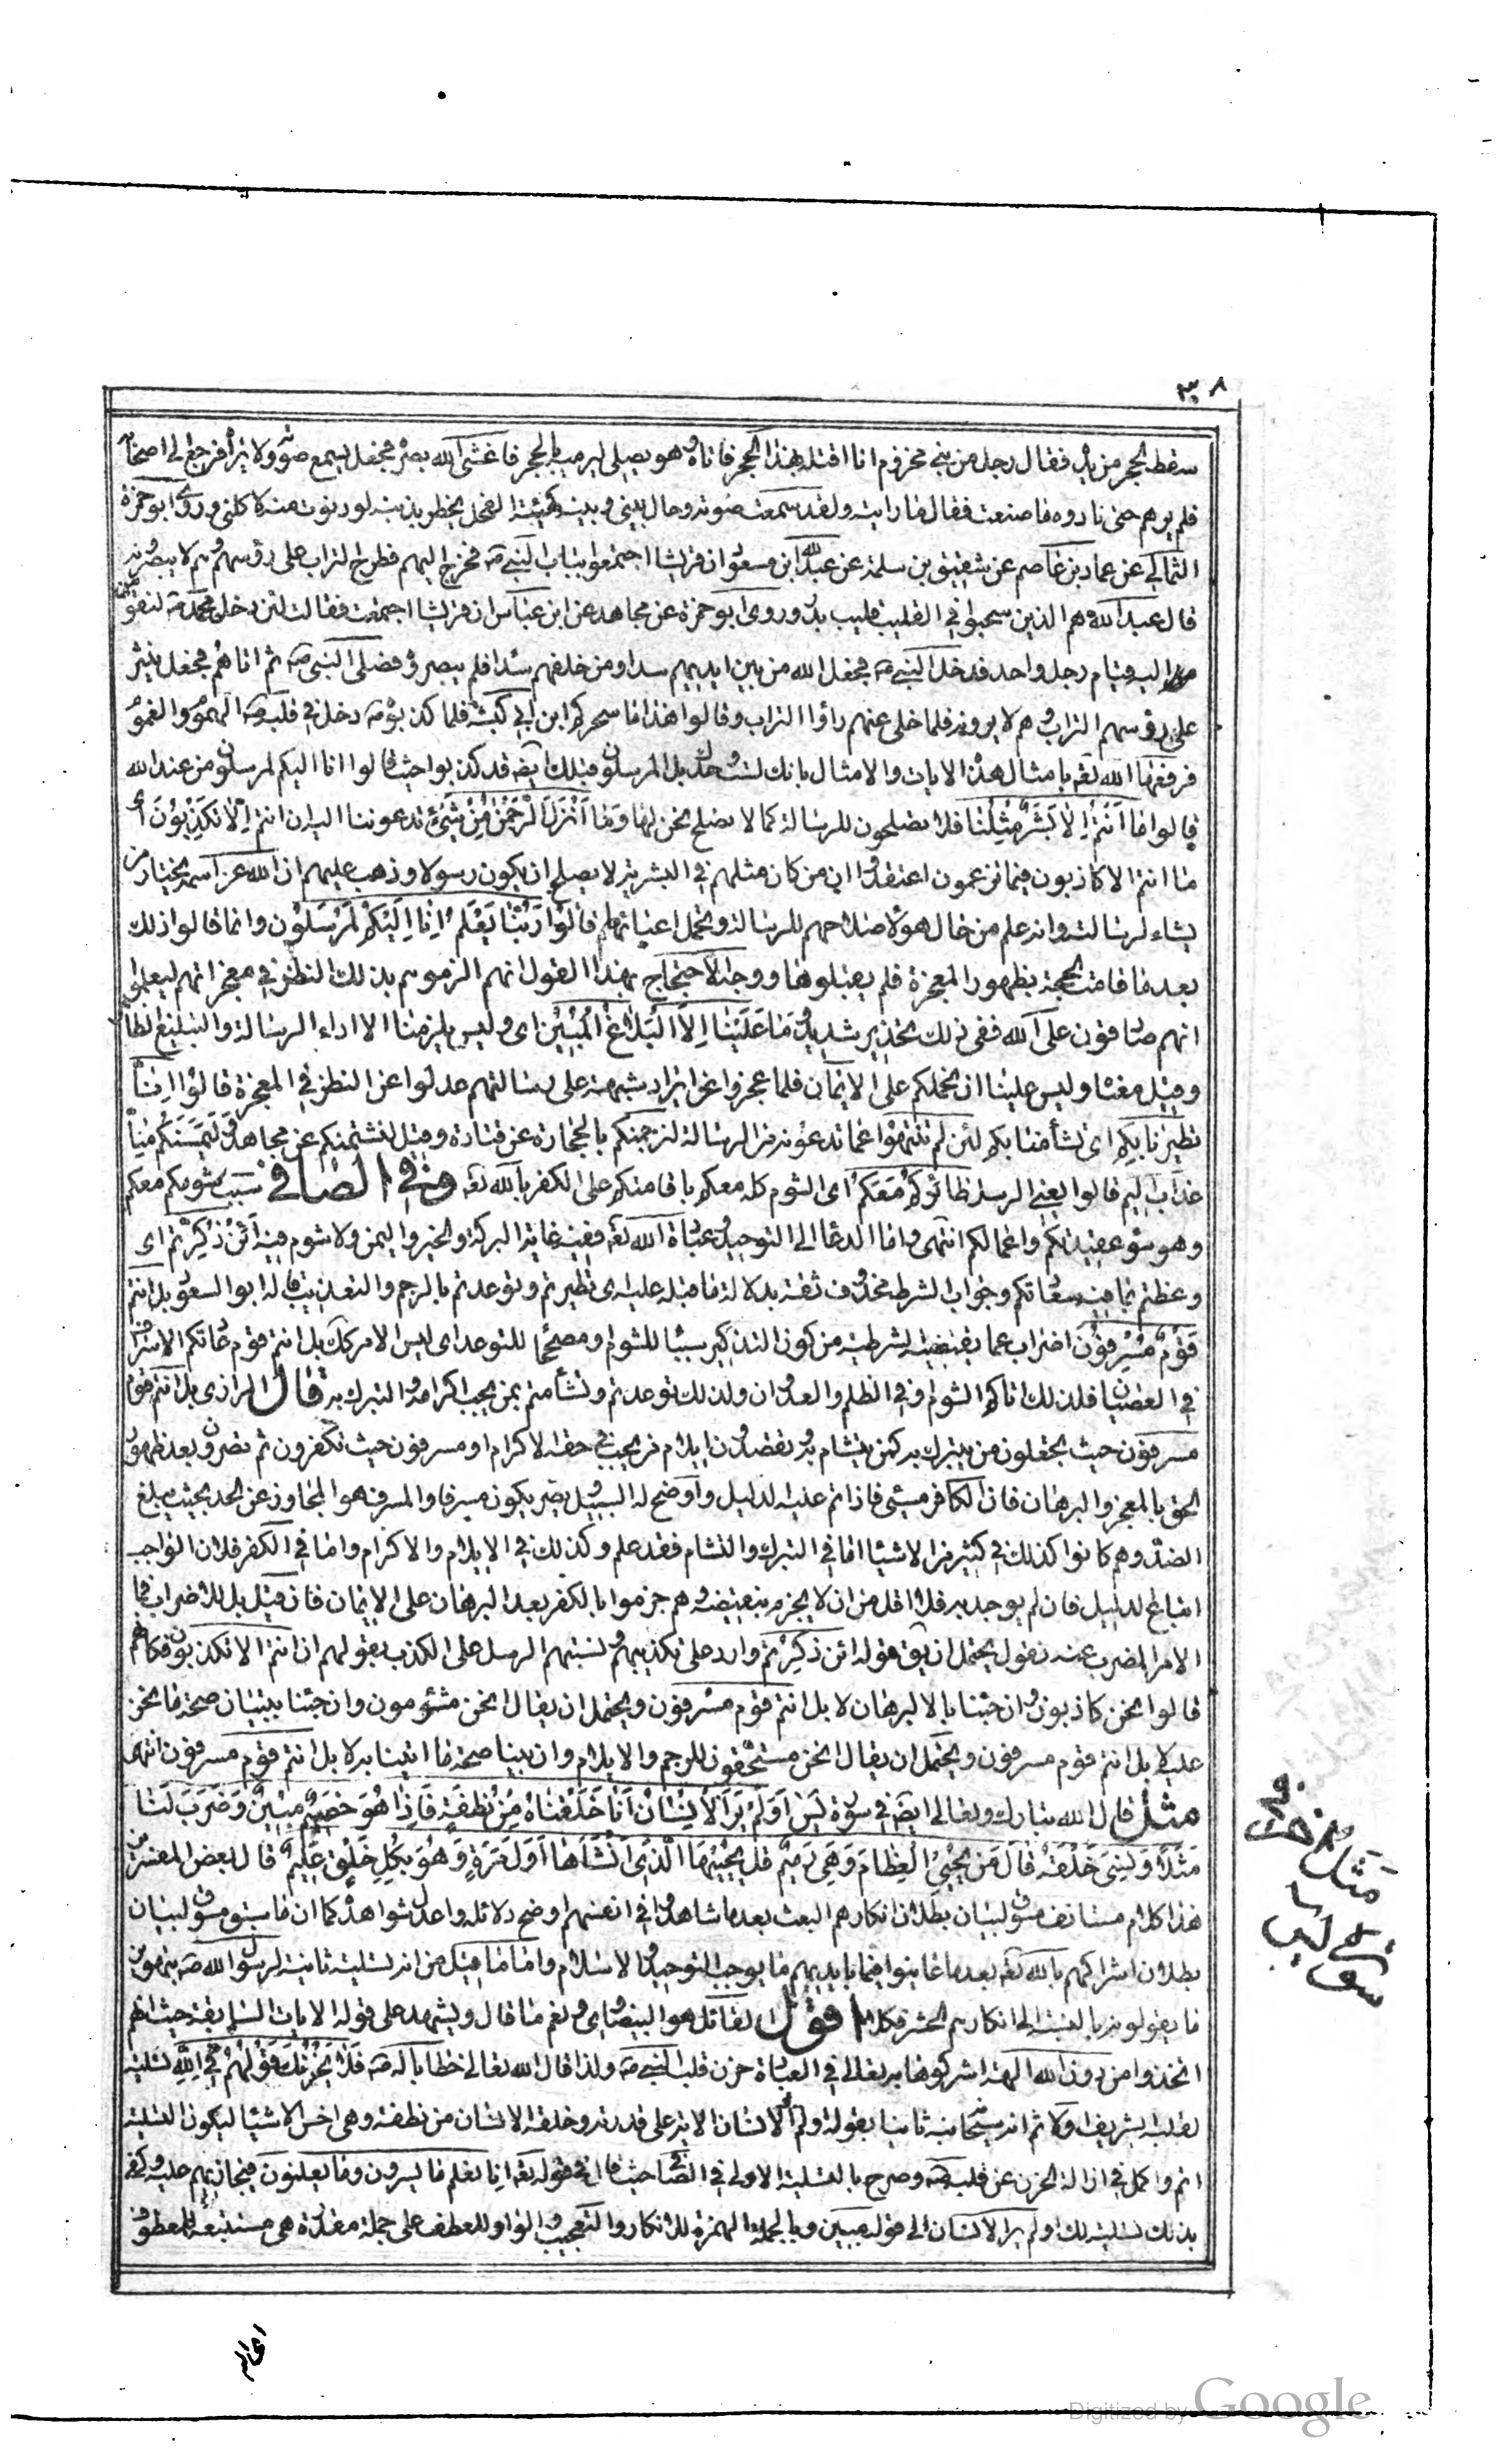 ٣٠٨
سقط الحجر من يده فقال رجل من بنى مخزوم انا اقتله بهذا الحجر فاتاه وهو يصلى ليرميه بالحجر فاغشى الله بصره فجعل يسمع صوته ولا يراه فرجع الى اصحابه
فلم يرهم حتى نادوه ما صنعت فقال ما رايته ولقد سمعت صوته وحال بينى وبينه كهيئة الفحل يخطر بذنبه لو دنوت منه لاكلنى وروى ابو حمزة
الثمالى عن عمار بن عاصم عن شقيق بن سلمة عن عبد الله ابن مسعود ان قريشا اجتمعوا بباب النبي صه فخرج اليهم فطرح التراب على رؤسهم وهم لا يبصرونه
قال عبد الله هم الذين سحبوا في القليب قليب بدر وروى ابو حمزة عن مجاهد عن ابن عباس ان قريشا اجتمعت فقالت لئن دخل محمد صه لنقومن
اليه قيام رجل واحد فدخل النبي صه فجعل الله من بين ايديهم سدا ومن خلفهم سدا فلم يبصروه فصلى النبى صه ثم اتاهم فجعل ينثر
على رؤسهم التراب وهم لا يرونه فلما خلى عنهم رأوا التراب وقالوا هذا ما سحركم ابن ابي كبشة فلما كذبوه صه دخل في قلبه صه الهموم والغموم
فرفعها الله تعه بامثال هذه الايات والامثال بانك لست وحدك بل المرسلون قبلك ايضه قد كذبوا حيث قالوا انا اليكم لمرسلون من عند الله
قالوا ما أَنْتُمْ اِلاٰ بَشَرٌ مِثْلُنٰا فلا تصلحون للرسالة كما لا نصلح نحن لها وَمٰا اَنْزَلَ الرَّحْمٰنُ مِنْ شَئٍ تدعوننا اليه ان انتم اِلاّٰ تَكْذِبُونَ اى
ما انتم الا كاذبون فيما تزعمون اعتقدوا ان من كان مثلهم في البشرية لا يصلح ان يكون رسولا وذهب عليهم ان الله عز اسمه يختار من
يشاء لرسالته وانه علم من حال هؤلاء صلاحهم للرسالة وتحمل اعبائها قالُوا رَبُّنٰا يَعْلَمُ اِنّٰا اِلَيْكُمْ لَمُرْسَلُونَ وانما قالوا ذلك
بعد ما قامت الحجة بظهور المعجزة فلم يقبلوها ووجه الاحتجاج بهذا القول انهم الزموهم بذلك النظر في معجزاتهم ليعلموا
انهم صادقون على الله ففى ذلك تحذير شديد وَمٰا عَلَيْنٰا اِلاَّ الْبَلاٰغُ الْمُبِيْنُ اى وليس يلزمنا الا اداء الرسالة والتبليغ الظاهر
وقيل معناه وليس علينا ان نحملكم على الايمان فلما عجزوا عن ايراد شبهة على رسالتهم عدلوا عن النظر في المعجزة قالُوا اِنّٰا
تطيّرنا بِكُمْ اى تشأمنا بكم لَئن لَمْ تَنْتَهُوا عما تدعونه من الرسالة لنرجمنكم بالحجارة عن قتادة وقيل لنشتمنكم عن مجاهد وَلَيَمَسَّنَكُمْ مِنّٰا
عَذابٌ اَلِيْم قالوا يعنى الرسل طٰائِرُكُمْ مَعَكُمْ اى الشوم كله معكم باقامتكم على الكفر بالله تعه وفي الصافي سبب شومكم معكم
وهو سوء عقيدتكم واعمالكم انتهى واما الدعا الى التوحيد وعبادة الله تعه ففيه غاية البركة والخير واليمن ولا شوم فيه اَئِنْ ذُكِّرْتُمْ اى
وعظتم بما فيه سعادتكم وجواب الشرط محذوف ثقة بدلالة ما قبله عليه اى تطيرتم وتوعدتم بالرجم والتعذيب قاله ابو السعود بل انتم
قَوْمٌ مُسْرِفُوْنَ اضراب عما يقتضيه لشرطية من كون التذكير سببا للشوم او مصححا للتوعد اى ليس الامر كك بل انتم قوم عادتكم الاسراف
في العصيان فلذلك اتاكم الشوم او في الظلم والعدوان ولذلك توعدتم وتشأمتم بمن يجب اكرامه والتبرك به قال الرازى بل انتم قوم
مسرفون حيث تجعلون من يتبرك به كمن يتشام به وتقصدون ايلام من يجب في حقه الاكرام او مسرفون حيث تكفرون ثم تصرون بعد ظهور
الحق بالمعجز والبرهان فان الكافر مسئ فاذا تم عليه لدليل واوضح له السبيل ويصر يكون مسرفا والمسرف هو المجاوز عن الحد بحيث يبلغ
الضد وهم كانوا كذلك في كثير من الاشياء اما في التبرك والتشام فقد علم وكذلك في الايلام والاكرام واما في الكفر فلان الواجب
اتباع لدليل فان لم يوجد به فلا اقل من ان لا يجزم بنقيضه وهم جزموا بالكفر بعد البرهان على الايمان فان قيل بل للاضراب فما
الامر المضرب عنه نقول يحتمل ان يق قوله ائن ذكرتم وارد على تكذيبهم ونسبتهم الرسل على الكذب بقولهم ان انتم الا تكذبون فكانهم
قالوا نحن كاذبون وان جئنا بالبرهان لا بل انتم قوم مسرفون ويحتمل ان يقال نحن مشئومون وان جئنا ببيان صحة ما نحن
عليه لا بل انتم قوم مسرفون ويحتمل ان يقال نحن مستحقون للرجم والايلام وان بينا صحة ما اتينا به لا بل انتم قوم مسرفون انتهى
مثل قال الله تبارك وتعالى ايضه في سورة يس اَوَلَمْ يَرَ الْاِنْسٰانُ اَنّٰا خَلَقْنٰاهُ مِنْ نُطْفَةٍ فَاِذٰا هُوَ خَصِيْمٌ مُبِيْنٌ وَضَرَبَ لَنٰا
مَثَلاً وَنَسِىَ خَلْقَهُ قٰالَ مَنْ يُحْيِى الْعِظٰامَ وَهِىَ رَمِيْمٌ قُلْ يُحْيِيْهَا الَّذِى اَنْشَأَهٰا اَوَّلَ مَرَةٍ وَهُوَ بِكُلِ خَلْقٍ عَلِيْمٌ قال بعض المفسرين
هذا كلام مستانف مسوق لبيان بطلان انكارهم البعث بعد ما شاهدوا في انفسهم اوضح دلائله واعدل شواهده كما ان ما سبق مسوق لبيان
بطلان اشراكهم بالله تعه بعد ما عاينوا فيما بايديهم ما يوجب التوحيد والاسلام واما ما قيل من انه تسلية ثانية لرسول الله صه بتهوين
ما يقولونه بالنسبة الى انكارهم الحشر فكلا اقول لقائل هو البيضاوى ونعم ما قال ويشهد على قوله الايات السابقة حيث انهم
اتخذوا من دون الله الهة اشركوها به تعالى في العبادة حزن قلب النبي صه ولذا قال الله تعالى خطابا له صه فَلاٰ يَحْزُنْكَ قَوْلُهُمْ تسلية
لقلبه الشريف ثم انه سبحانه ثانيا بقوله اولم ير الانسان الاية على قدرته وخلقه الانسان من نطفة وهى اخس الاشياء ليكون التسلية
اتم واكمل في ازالة الحزن عن قلبه صه وصرح بالتسلية الاولى في الصافى حيث قال في قوله تعه انا نعلم ما يسرون وما يعلنون فيجازيهم عليه وكفى
بذلك تسلية لك اولم ير الانسان الى قوله مبين وبالجملة الهمزة للانكار والتعجب والواو للعطف على جملة مقدرة هى مستتبعة للمعطوف
مَثَل
سورة يس
Digitized by Google